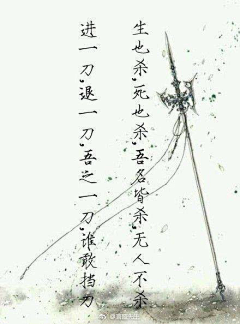 生也杀,死也杀,吾名皆杀,无人不杀
进一刀,退一刀,吾之一刀,谁敢挡刀